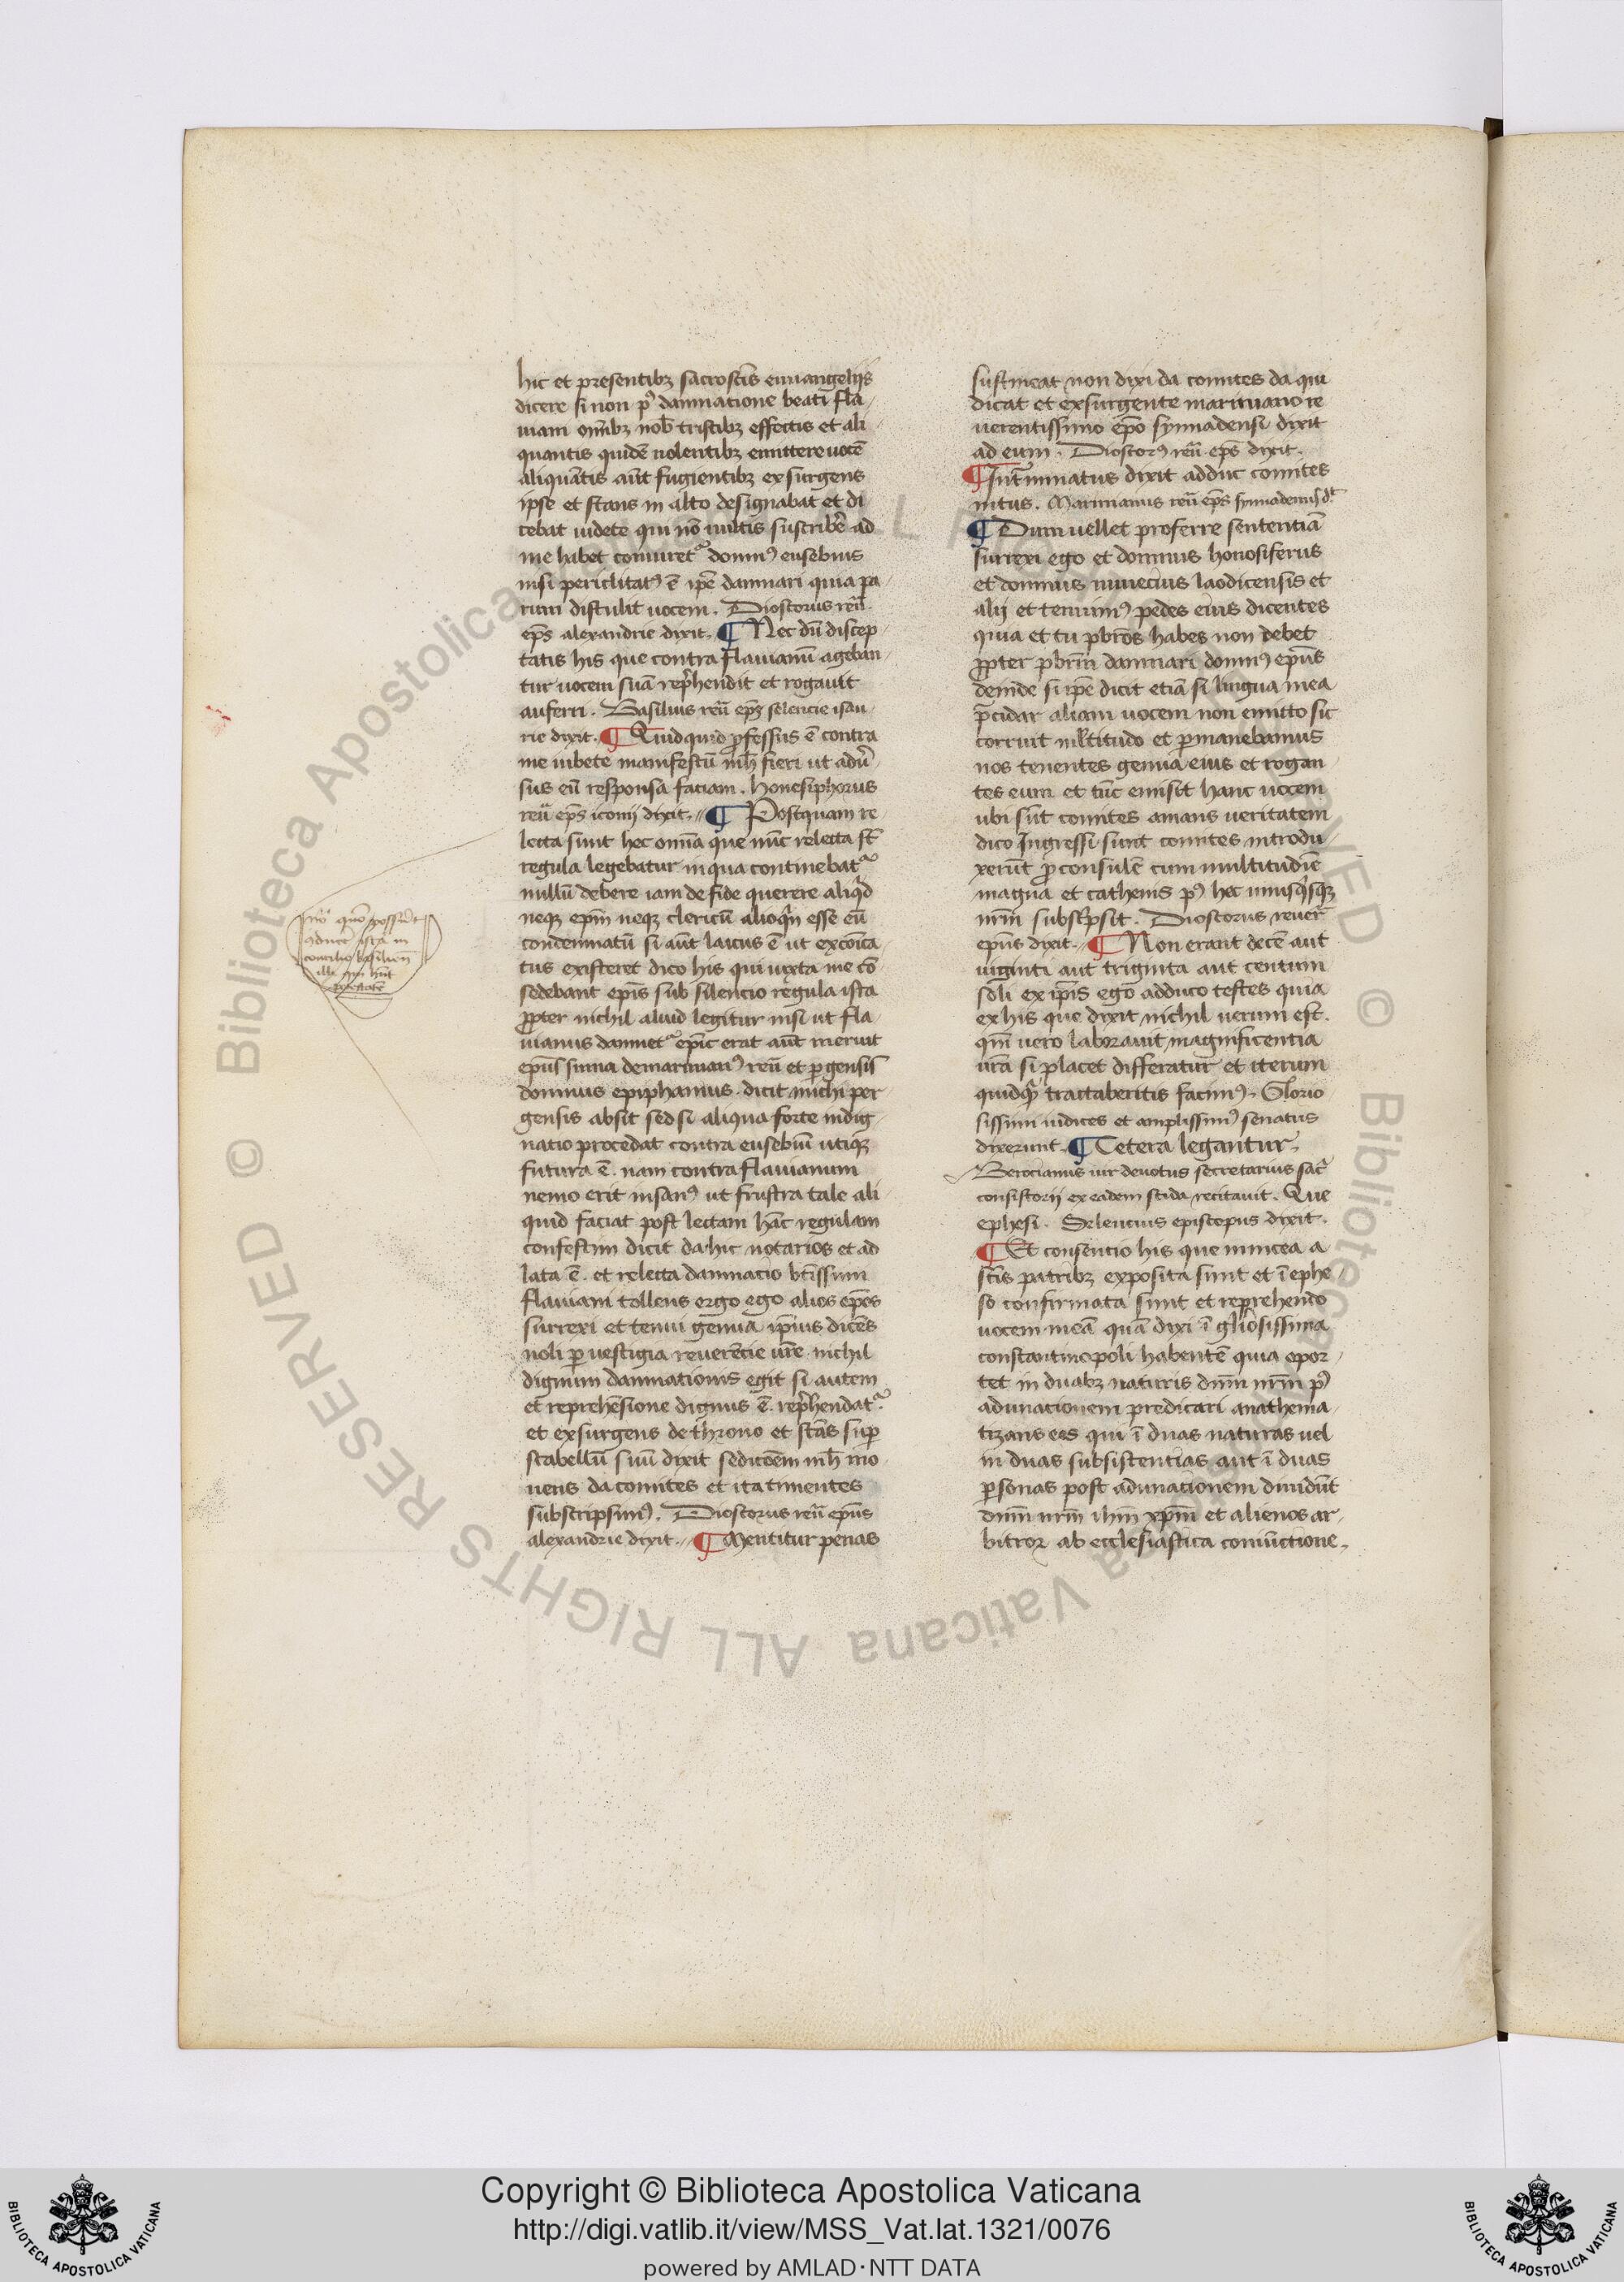 hic et presentibꝫ sacrosc̄is euuangelijs
dicere si non pꝰ damnatione beati fla
uiani om̄ibꝫ nob̄ tristibꝫ effectis et ali
quantis quidē nolentibꝫ emittere uocē
aliquātis aūt fugientibꝫ exsurgens
ipse et stans in alto designabat et di
cebat uidete qui nō uultis suscribē ad
me habet coniuret᷑ domnꝰ eusebius
nisi periclitatꝰ ē ip̄e damnari quia pa
rum distulit uocem. Dioscorus reū.
ep̄s alexandrie dixit. ¶ Nec dū discep
tatis his que contra flauianū ageban
tur uocem suā rep̄hendit et rogauit
auferri. Basilius reū ep̄s selencie isau
rie dixit. ¶ Quidquid ꝓfessus ē contra
me iubete manifestū mh̄ fieri ut adū
sus eū responsa faciam. Honesiphorus
reū ep̄s iconij dixit. ¶ Postquam re
lecta sunt hec om̄ia que nūc relecta st̄
regula legebatur in qua continebat᷑
nullū debere iam de fide querere aliq̄d
neqꝫ ep̄m neqꝫ clericū alioq̄n esse eū
condemnatū si aūt laicus ē ut excōīca
tus existeret dico his qui iuxta me cō
sedebant ep̄is sub silencio regula ista
ꝓpter nichil aliud legitur nisi ut fla
uianus damnet᷑ epīc erat aūt meruit
ep̄us sinna demarinianꝰ reū et ꝑgensis
domnus epiphanius dicit michi per
gensis absit sed si aliqua forte indig
natio procedat contra eusebiū utiqꝫ
futura ē. nam contra flauianum
nemo erit insanꝰ ut frustra tale ali
quid faciat post lectam hāc regulam
confestim dicit da hic notarios et ad
lata ē. et relecta damnacio bt̄issimi
flauiani tollens ergo ego alios ep̄os
surrexi et tenui genua ip̄ius dicēs
noli ꝑ uestigia reuerētie ūre nichil
dignum damnationis egit si autem
et reprehēsione dignus ē. rep̄hendat᷑
et exsurgens de throno et stās suꝑ
scabellū suū dixit sedicōem mh̄ mo
uens da comites et ita timentes
subscripsimꝰ. Dioscorus reū ep̄us
alexandrie dixit. ¶ Mentitur penas
sustineat non dixi da comites da qui
dicat et exsurgente mariniano re
uerentissimo ep̄o synnadensi dixit
ad eum. Dioscorꝰ reū ep̄s dixit.
nitus. Marinianus reū ep̄s synnadensis d̄t
¶ Dum uellet proferre sententiā
surrexi ego et domnus honosiferus
et domnus nunecius laodicensis et
alij et tenuimꝰ pedes eius dicentes
quia et tu pb̄ros habes non debet
ꝓpter pb̄rm̄ damnari domnꝰ ep̄us
deinde si ip̄e dicit etiā si lingua mea
p̄cidar aliam uocem non emitto sic
corruit ml̄titudo et ꝑmanebamus
nos tenentes genua eius et rogan
tes eum et tūc emisit hanc uocem
ubi sūt comites amans ueritatem
dico Ingressi sunt comites introdu
xerūt ꝓconsulē cum multitudīe
magna et cathenis pꝰ hec unusq̄sqꝫ
nr̄m subsc̄psit. Dioscorus reuer̄
ep̄us dixit. ¶ Non erant decē aut
uiginti aut triginta aut centum
soli ex ip̄is ego adduco testes quia
ex his que dixit nichil uerum est.
qm̄ uero laborauit magnificentia
ūra si placet differatur et iterum
quidq̄ tractaberitis facimꝰ. Glorio
sissimi iudices et amplissimꝰ senatus
dixerunt. ¶ Cetera legantur.
Berocianus uir deuotus secretarius sac̄
consistorij ex eadem scida recitauit. Que
ephesi. Selencius episcopus dixit.
¶ Et consencio his que in nicea a
sc̄is patribꝫ exposita sunt et ī ephe
so confirmata sunt et reprehendo
uocem meā quā dixi ī gl̄iosissima
constantinopoli habentē quia opor
tet in duabꝫ naturis dn̄m nr̄m pꝰ
adunationem predicari anathema
tizans eos qui ī duas naturas uel
in duas subsistentias aut ī duas
ꝑsonas post adunationem diuidūt
dn̄m nr̄m ihm̄ xp̄m et alienos ar
bitror ab ecclesiastica coniūctione.
Copyright © Biblioteca Apostolica Vaticana
http://digi.vatlib.it/view/MSS_Vat.lat.1321/0076
powered by AMLAD·NTT DATA
BIBLIOTECA APOSTOLICA VATICANA
BIBLIOTECA APOSTOLICA VATICANA